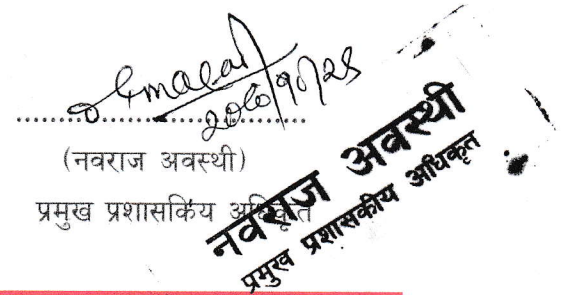 (नवराज अवस्थी)
प्रमुख प्रशासकिय अधिकृत
नवराज अवस्थी
प्रमुख प्रशासकीय अधिकृत